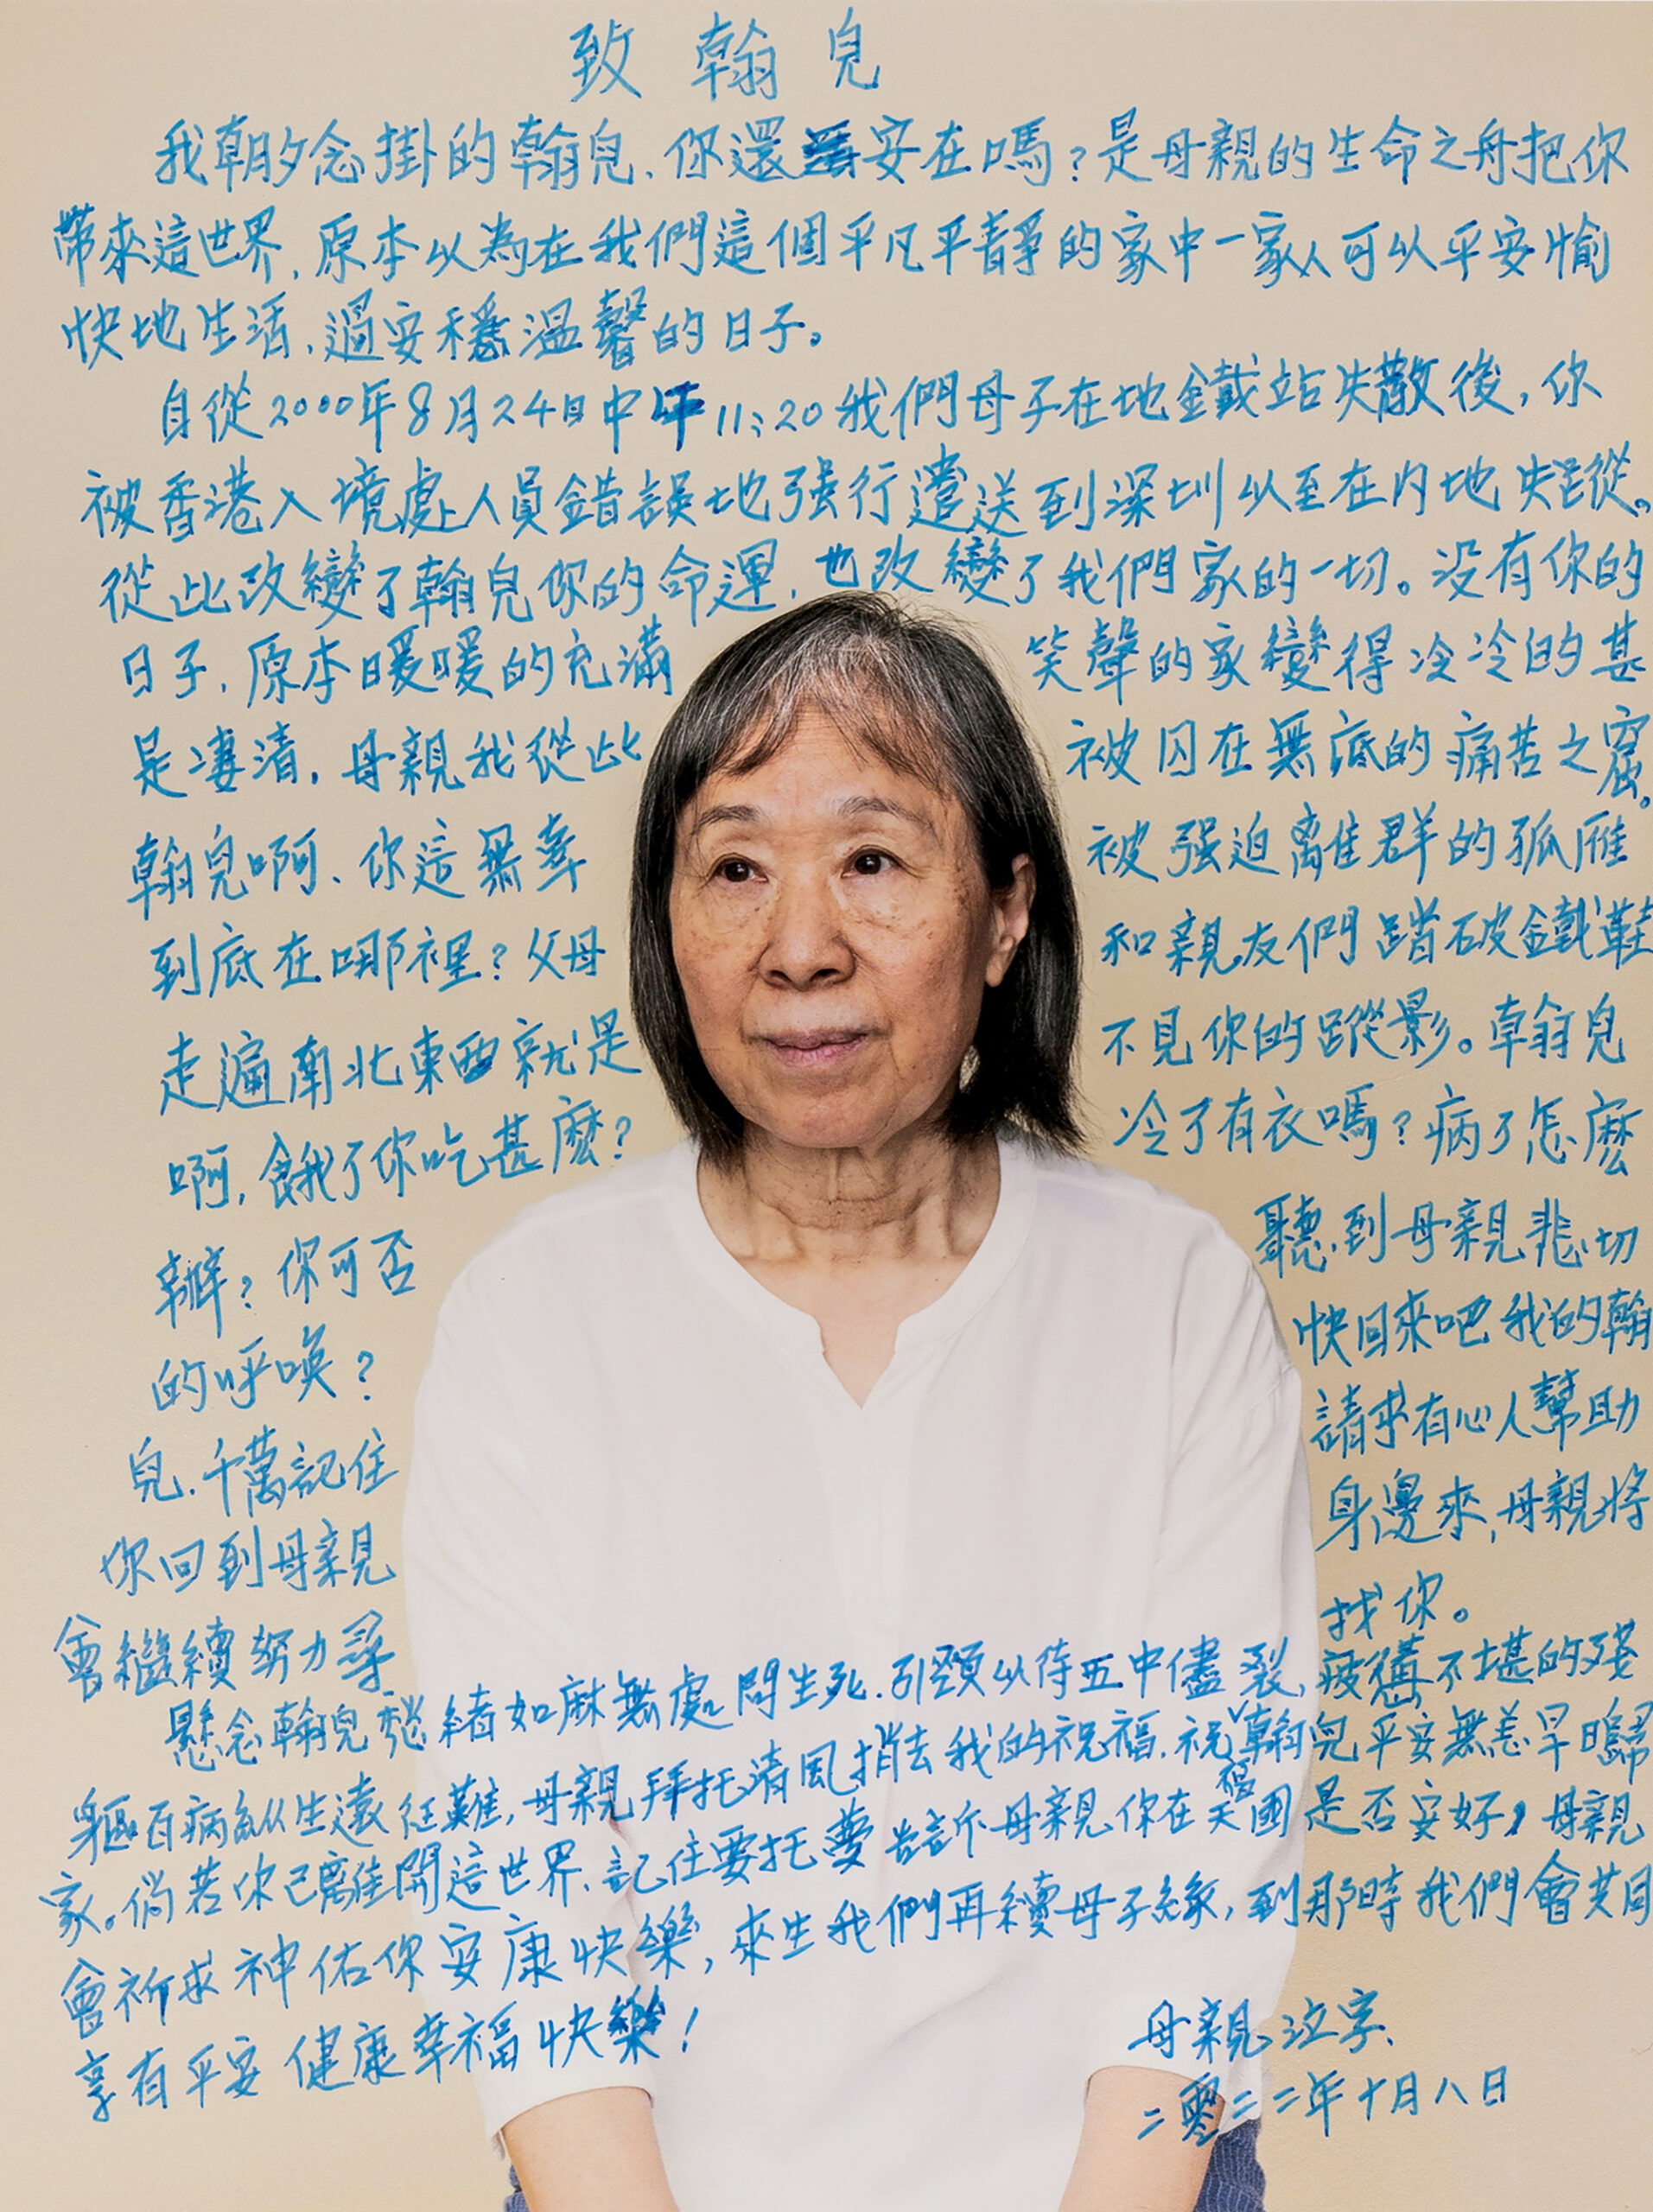 致翰兒
我朝夕念掛的翰兒、你還安在嗎？是母親的生命之舟把你
帶來這世界，原本以為在我們這個平凡平靜的家中一家人可以平安愉
快地生活，過安穩溫馨的日子。
自從2000年8月24日中午11:20我們母子在地鐵站失散後，你
被香港入境處人員錯誤地强行遣送到深圳以至在內地失蹤。
從此改變了翰兒你的命運，也改變了我們家的一切。没有你的
日子，原本暖暖的充滿笑聲的家變得冷冷的甚
是凄清，母親我從此被囚在無底的痛苦之窟。
翰兒啊、你這無辜被强迫離群的孤雁
到底在哪裡？父母和親友們踏破鐵鞋
走遍南北東西就是不見你的蹤影。翰兒
啊，餓了你吃甚麼？冷了有衣嗎？病了怎麼
辦？你可否聽到母親悲切
的呼喚？快回來吧我的翰
兒、千萬記住請求有心人幫助
你回到母親身邊來，母親將
會繼續努力尋找你。
懸念翰兒愁緒如麻無處問生死、引頸以待五中儘裂，疲憊不堪的殘
軀百病縱生遠征難，母親拜托清風捎去我的祝福、祝翰兒平安無恙早日歸
家。倘若你已離開這世界、記住要托夢告訴母親你在天國是否安好，母親
會祈求神佑你安康快樂，來生我們再續母子緣，到那時我們會共同
享有平安健康幸福快樂！
母親泣字、
二零二二年十月八日